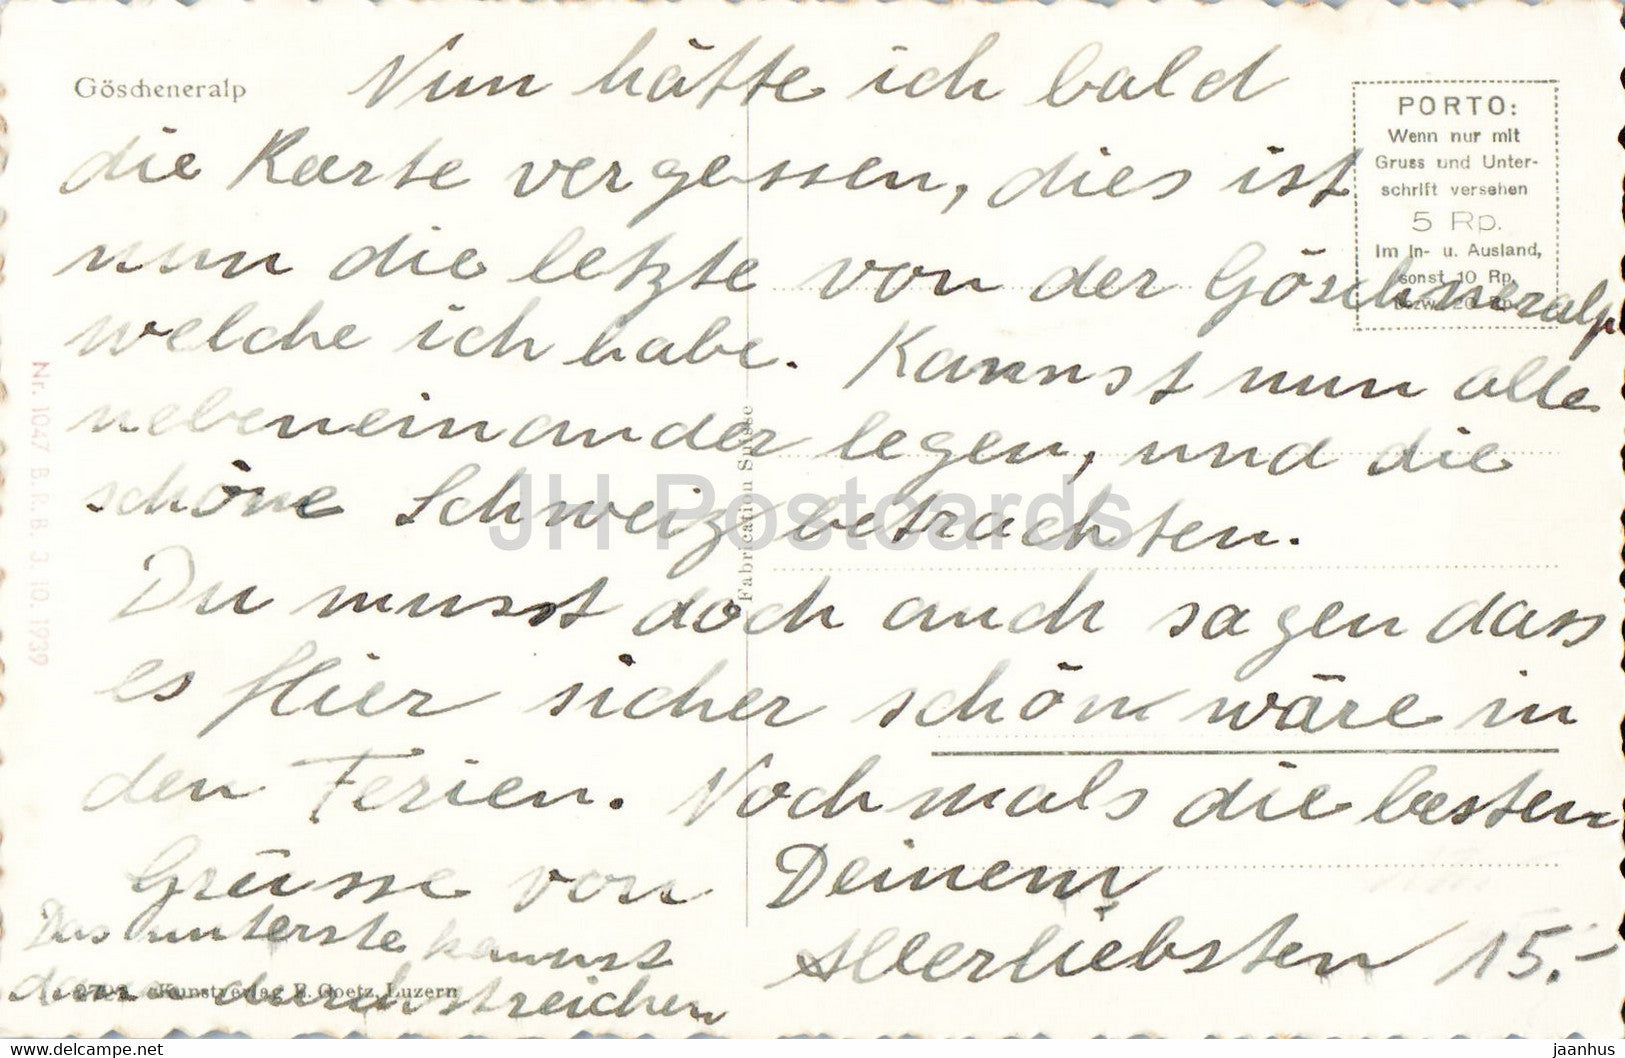 Göscheneralp
Nun hätte ich bald
die Karte vergessen, dies ist
nun die letzte von der Göscheneralp
welche ich habe. Kannst nun alle
nebeneinander legen, und die
schöne Schweiz betrachten.
Du musst doch auch sagen dass
es Hier sicher schön wäre in
den Ferien. Nochmals die besten
Grüsse von Deinem
Allerliebsten 15.-
Das unterste kannst
dann durchstreichen
PORTO:
Wenn nur mit
Gruss und Unter-
schrift versehen
5 Rp.
Im In- u. Ausland,
sonst 10 Rp.
bezw. 20 Rp.
Nr. 1047 B.R.B. 3.10.1939
Fabrication Suisse
Kunstverlag E. Goetz, Luzern
JH Postcards
www.delcampe.net
jaanhus